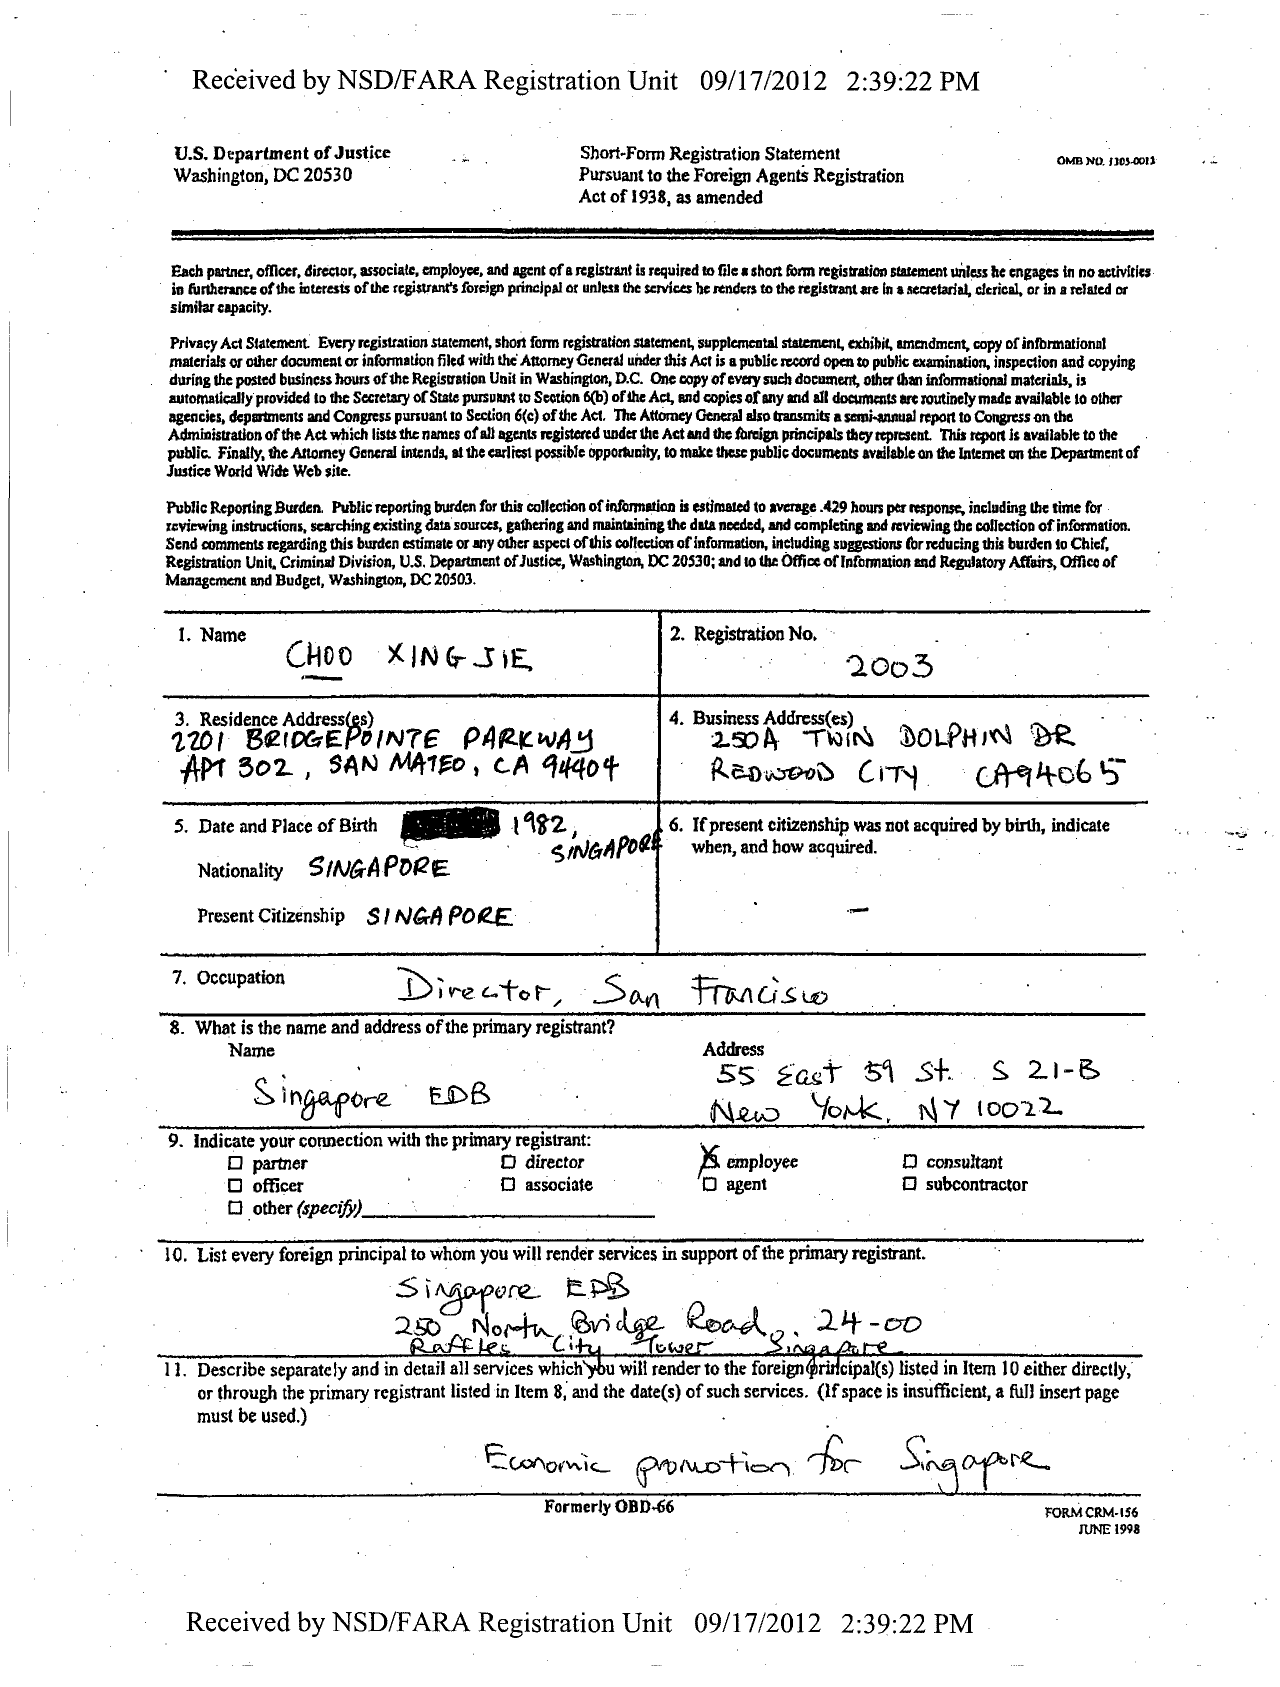 Received by NSD/FARA Registration Unit 09/17/2012 2:39:22 PM
U.S. Department of Justice
Washington, DC 20530
Short-Form Registration Statement
Pursuant to the Foreign Agents Registration
Act of 1938, as amended
OMB NO. 1105-0011
Each partner, officer, director, associate, employee, and agent of a registrant is required to file a short form registration statement unless he engages in no activities
in furtherance of the interests of the registrant's foreign principal or unless the services he renders to the registrant are in a secretarial, clerical, or in a related or
similar capacity.
Privacy Act Statement. Every registration statement, short form registration statement, supplemental statement, exhibit, amendment, copy of informational
materials or other document or information filed with the Attorney General under this Act is a public record open to public examination, inspection and copying
during the posted business hours of the Registration Unit in Washington, D.C. One copy of every such document, other than informational materials, is
automatically provided to the Secretary of State pursuant to Section 6(b) of the Act, and copies of any and all documents are routinely made available to other
agencies, departments and Congress pursuant to Section 6(c) of the Act. The Attorney General also transmits a semi-annual report to Congress on the
Administration of the Act which lists the names of all agents registered under the Act and the foreign principals they represent. This report is available to the
public. Finally, the Attorney General intends, at the earliest possible opportunity, to make these public documents available on the Internet on the Department of
Justice World Wide Web site.
Public Reporting Burden. Public reporting burden for this collection of information is estimated to average .429 hours per response, including the time for
reviewing instructions, searching existing data sources, gathering and maintaining the data needed, and completing and reviewing the collection of information.
Send comments regarding this burden estimate or any other aspect of this collection of information, including suggestions for reducing this burden to Chief,
Registration Unit, Criminal Division, U.S. Department of Justice, Washington, DC 20530; and to the Office of Information and Regulatory Affairs, Office of
Management and Budget, Washington, DC 20503.
1. Name
CHOO XINGJIE
2. Registration No.
2003
3. Residence Address(es)
2201 BRIDGEPOINTE PARKWAY
APT 302, SAN MATEO, CA 94404
4. Business Address(es)
250A TWIN DOLPHIN DR
REDWOOD CITY CA94065
5. Date and Place of Birth 1982,
SINGAPORE
Nationality SINGAPORE
Present Citizenship SINGAPORE
6. If present citizenship was not acquired by birth, indicate
when, and how acquired.
–
7. Occupation Director, San Francisco
8. What is the name and address of the primary registrant?
Name
Singapore EDB
Address
55 East 59 St. S 21-B
New York, NY 10022
9. Indicate your connection with the primary registrant:
partner director employee consultant
officer associate agent subcontractor
other (specify)
10. List every foreign principal to whom you will render services in support of the primary registrant.
Singapore EDB
250 North Bridge Road, 24-00
Raffles City Tower Singapore
11. Describe separately and in detail all services which you will render to the foreign principal(s) listed in Item 10 either directly,
or through the primary registrant listed in Item 8, and the date(s) of such services. (If space is insufficient, a full insert page
must be used.)
Economic promotion for Singapore
Formerly OBD-66
FORM CRM-156
JUNE 1998
Received by NSD/FARA Registration Unit 09/17/2012 2:39:22 PM